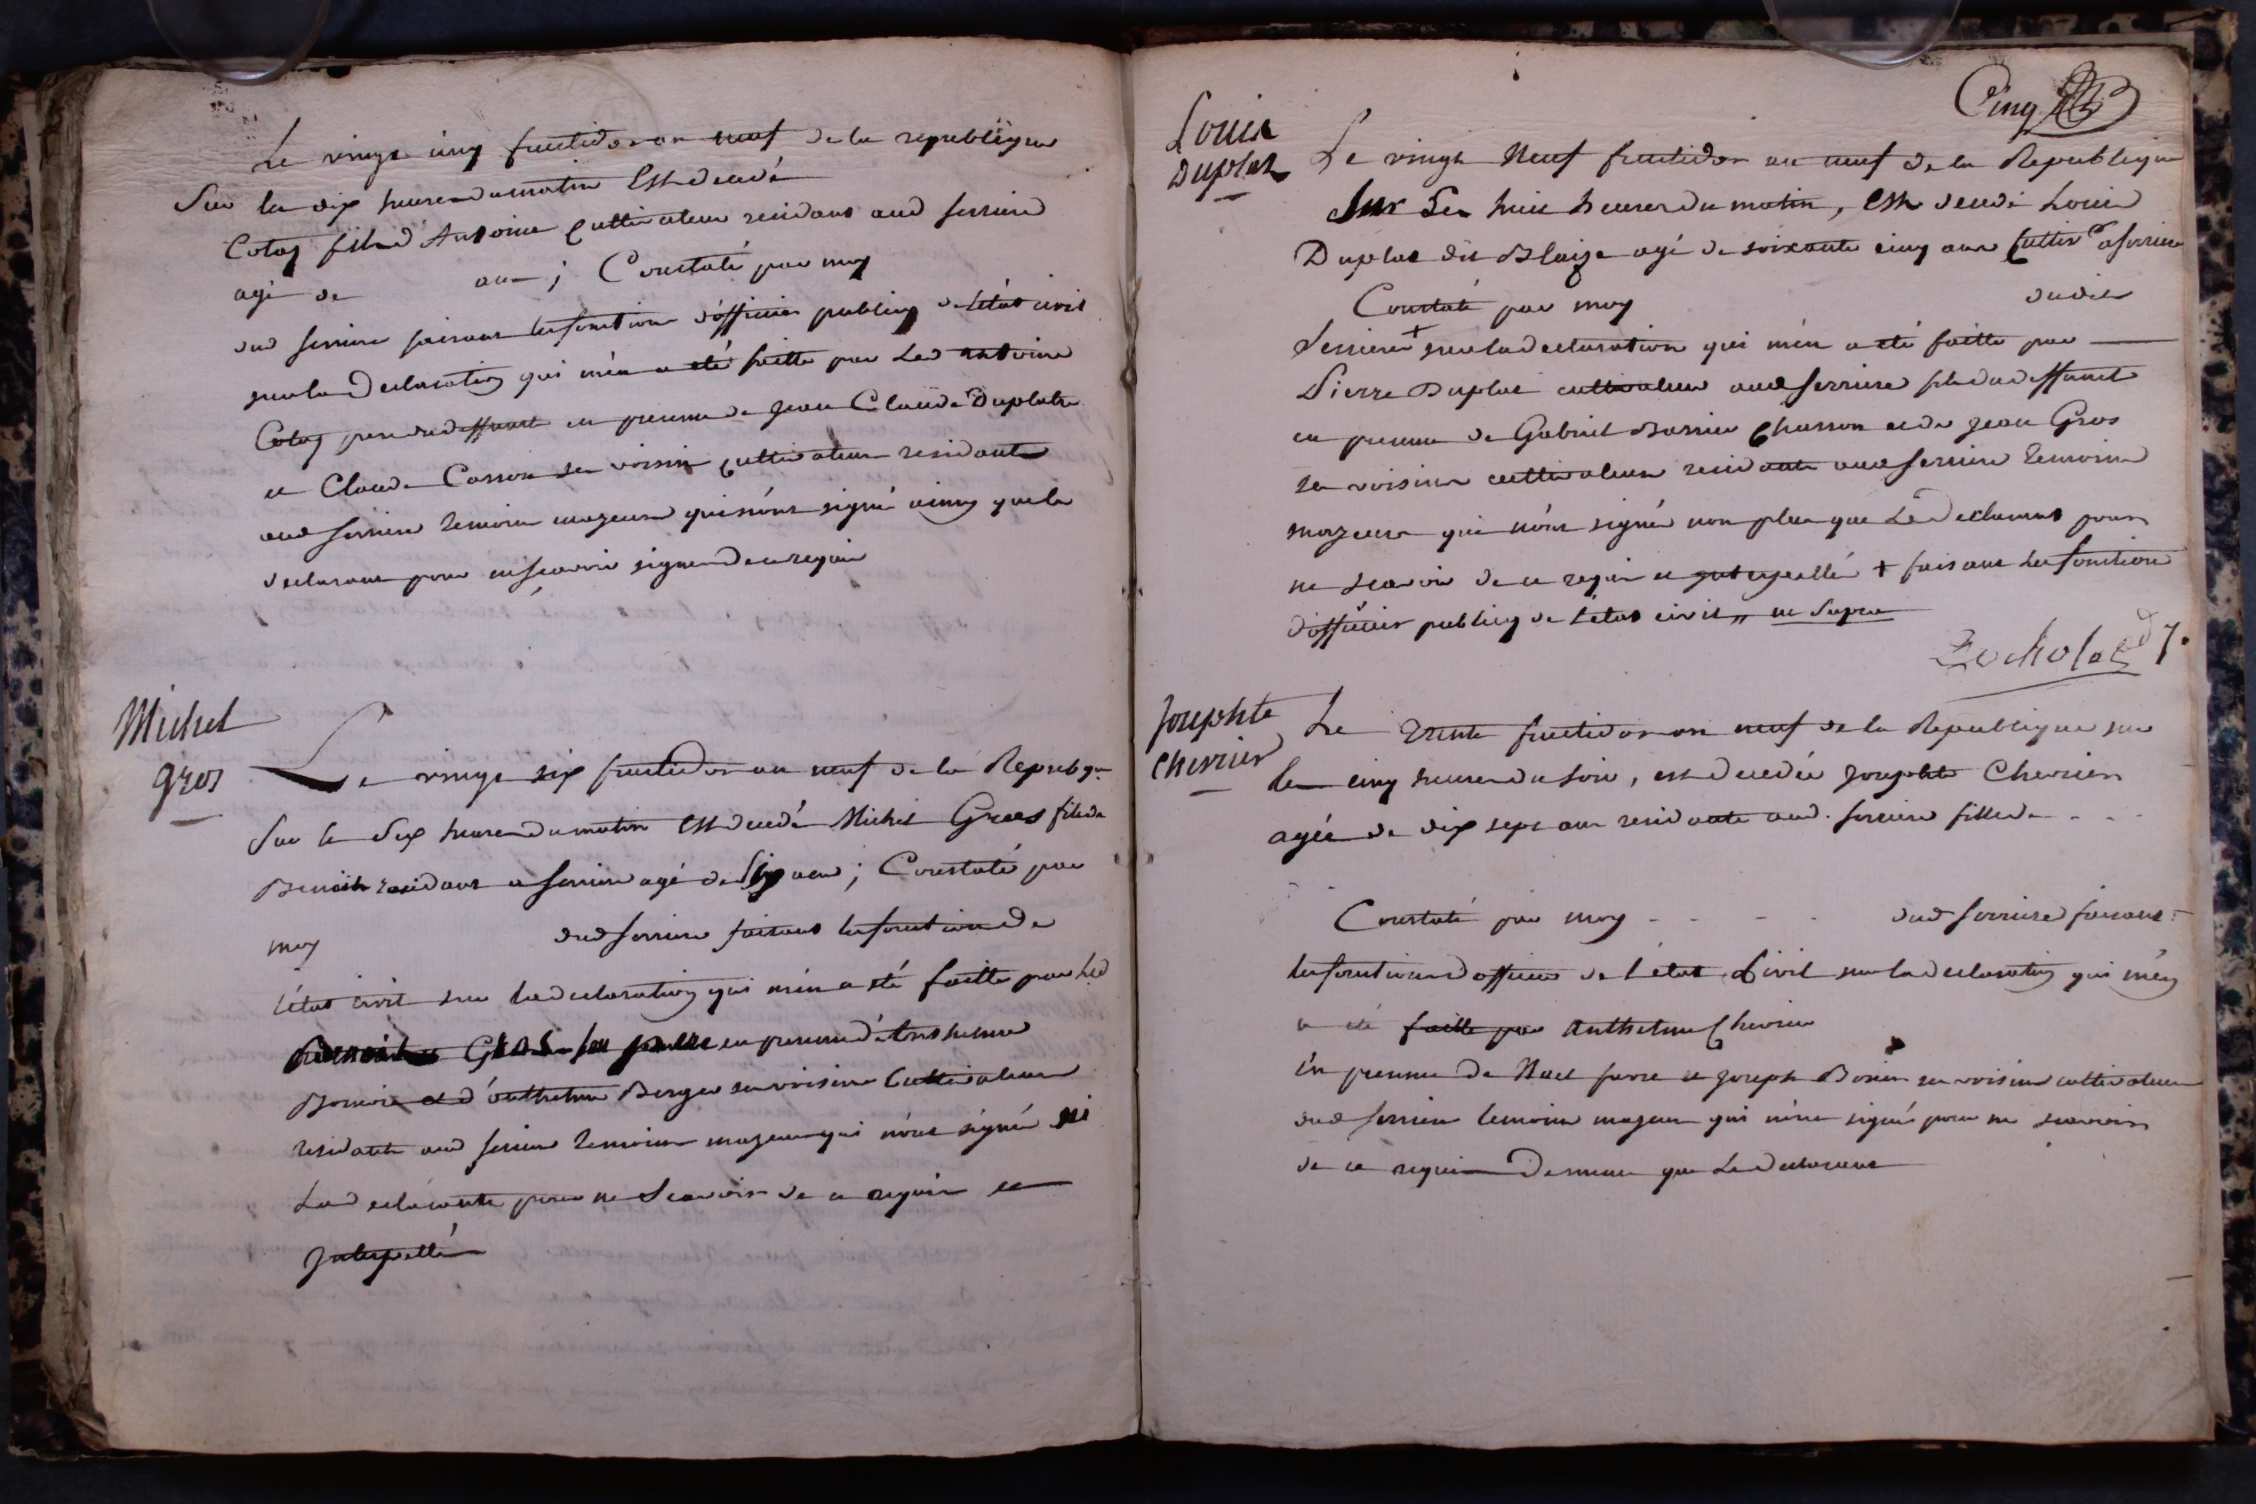 Le vingt cinq fructidor an neuf de la republique
Sur les dix heures du matin Est decedé
Cotaz fils d'Antoine Cultivateur residant aud serriere
agé de ans ; Constaté par moy
dud serriere faisant les fonctions d'officier public de l'état civil
sur la declaration qui m'en a été faitte par Led antoine
Cotaz pere dud deffunt en presence de jean Claude Duplatre
et Claude Cosson ses voisins cultivateurs residants
aud serriere temoins mazeurs qui n'ont signé ainsy que le
declarant pour ne scavoir signer de ce requis
Michel
gros
Le vingt six fructidor an neuf de la Republique
Sur le Six heures du matin Est decedé Michel Gros fils de
Benoit residant a serriere agé de Six ans ; Constaté par
moy dud serriere faisant les fonctions de
l'état civil sur la declaration qui m'en a été faitte par Led
Benoit Gros son pere en presence d'anthelme
et d'anthelme Berger ses voisins Cultivateurs
residants aud serriere temoins mazeurs qui n'ont signé ni
Led declarant pour ne Scavoir de ce requis et
Interpellé
Cinq
Louis
Duplat
Le vingt Neuf fructidor an neuf de la Republique
Sur Les huit heures du matin, Est decedé Louis
Duplat dit Blaize agé de soixante cinq ans Cultivr a serriere
Constaté par moy dudit
Serriere + sur la declaration qui m'en a été faitte par
Pierre Duplat cultivateur aud serriere fils dud deffunt
en presence de Gabriel Bonnier Chasson et de Jean Gros
ses voisins cultivateurs residants aud serriere temoins
mazeurs qui n'ont signé non plus que Led declarant pour
ne scavoir de ce requis et interpellé + faisant les fonctions
d'officier public de l'état civil ut Supra
Josephte
Chevrier
Le trente fructidor an neuf de la Republique sur
les cinq heures du soir, est decedée Josephte Chevrier
agée de dix sept ans residante aud. serriere fille de - - -
Constaté par moy - - - - dud serriere faisant
les fonctions d'officier de l'état Civil sur la declaration qui m'en
a été faitte par anthelme Chevrier
En presence de Noel favre et Joseph Bonier ses voisins cultivateurs
dud serriere temoins mazeurs qui n'ont signé pour ne scavoir
de ce requis De meme que Led declarant